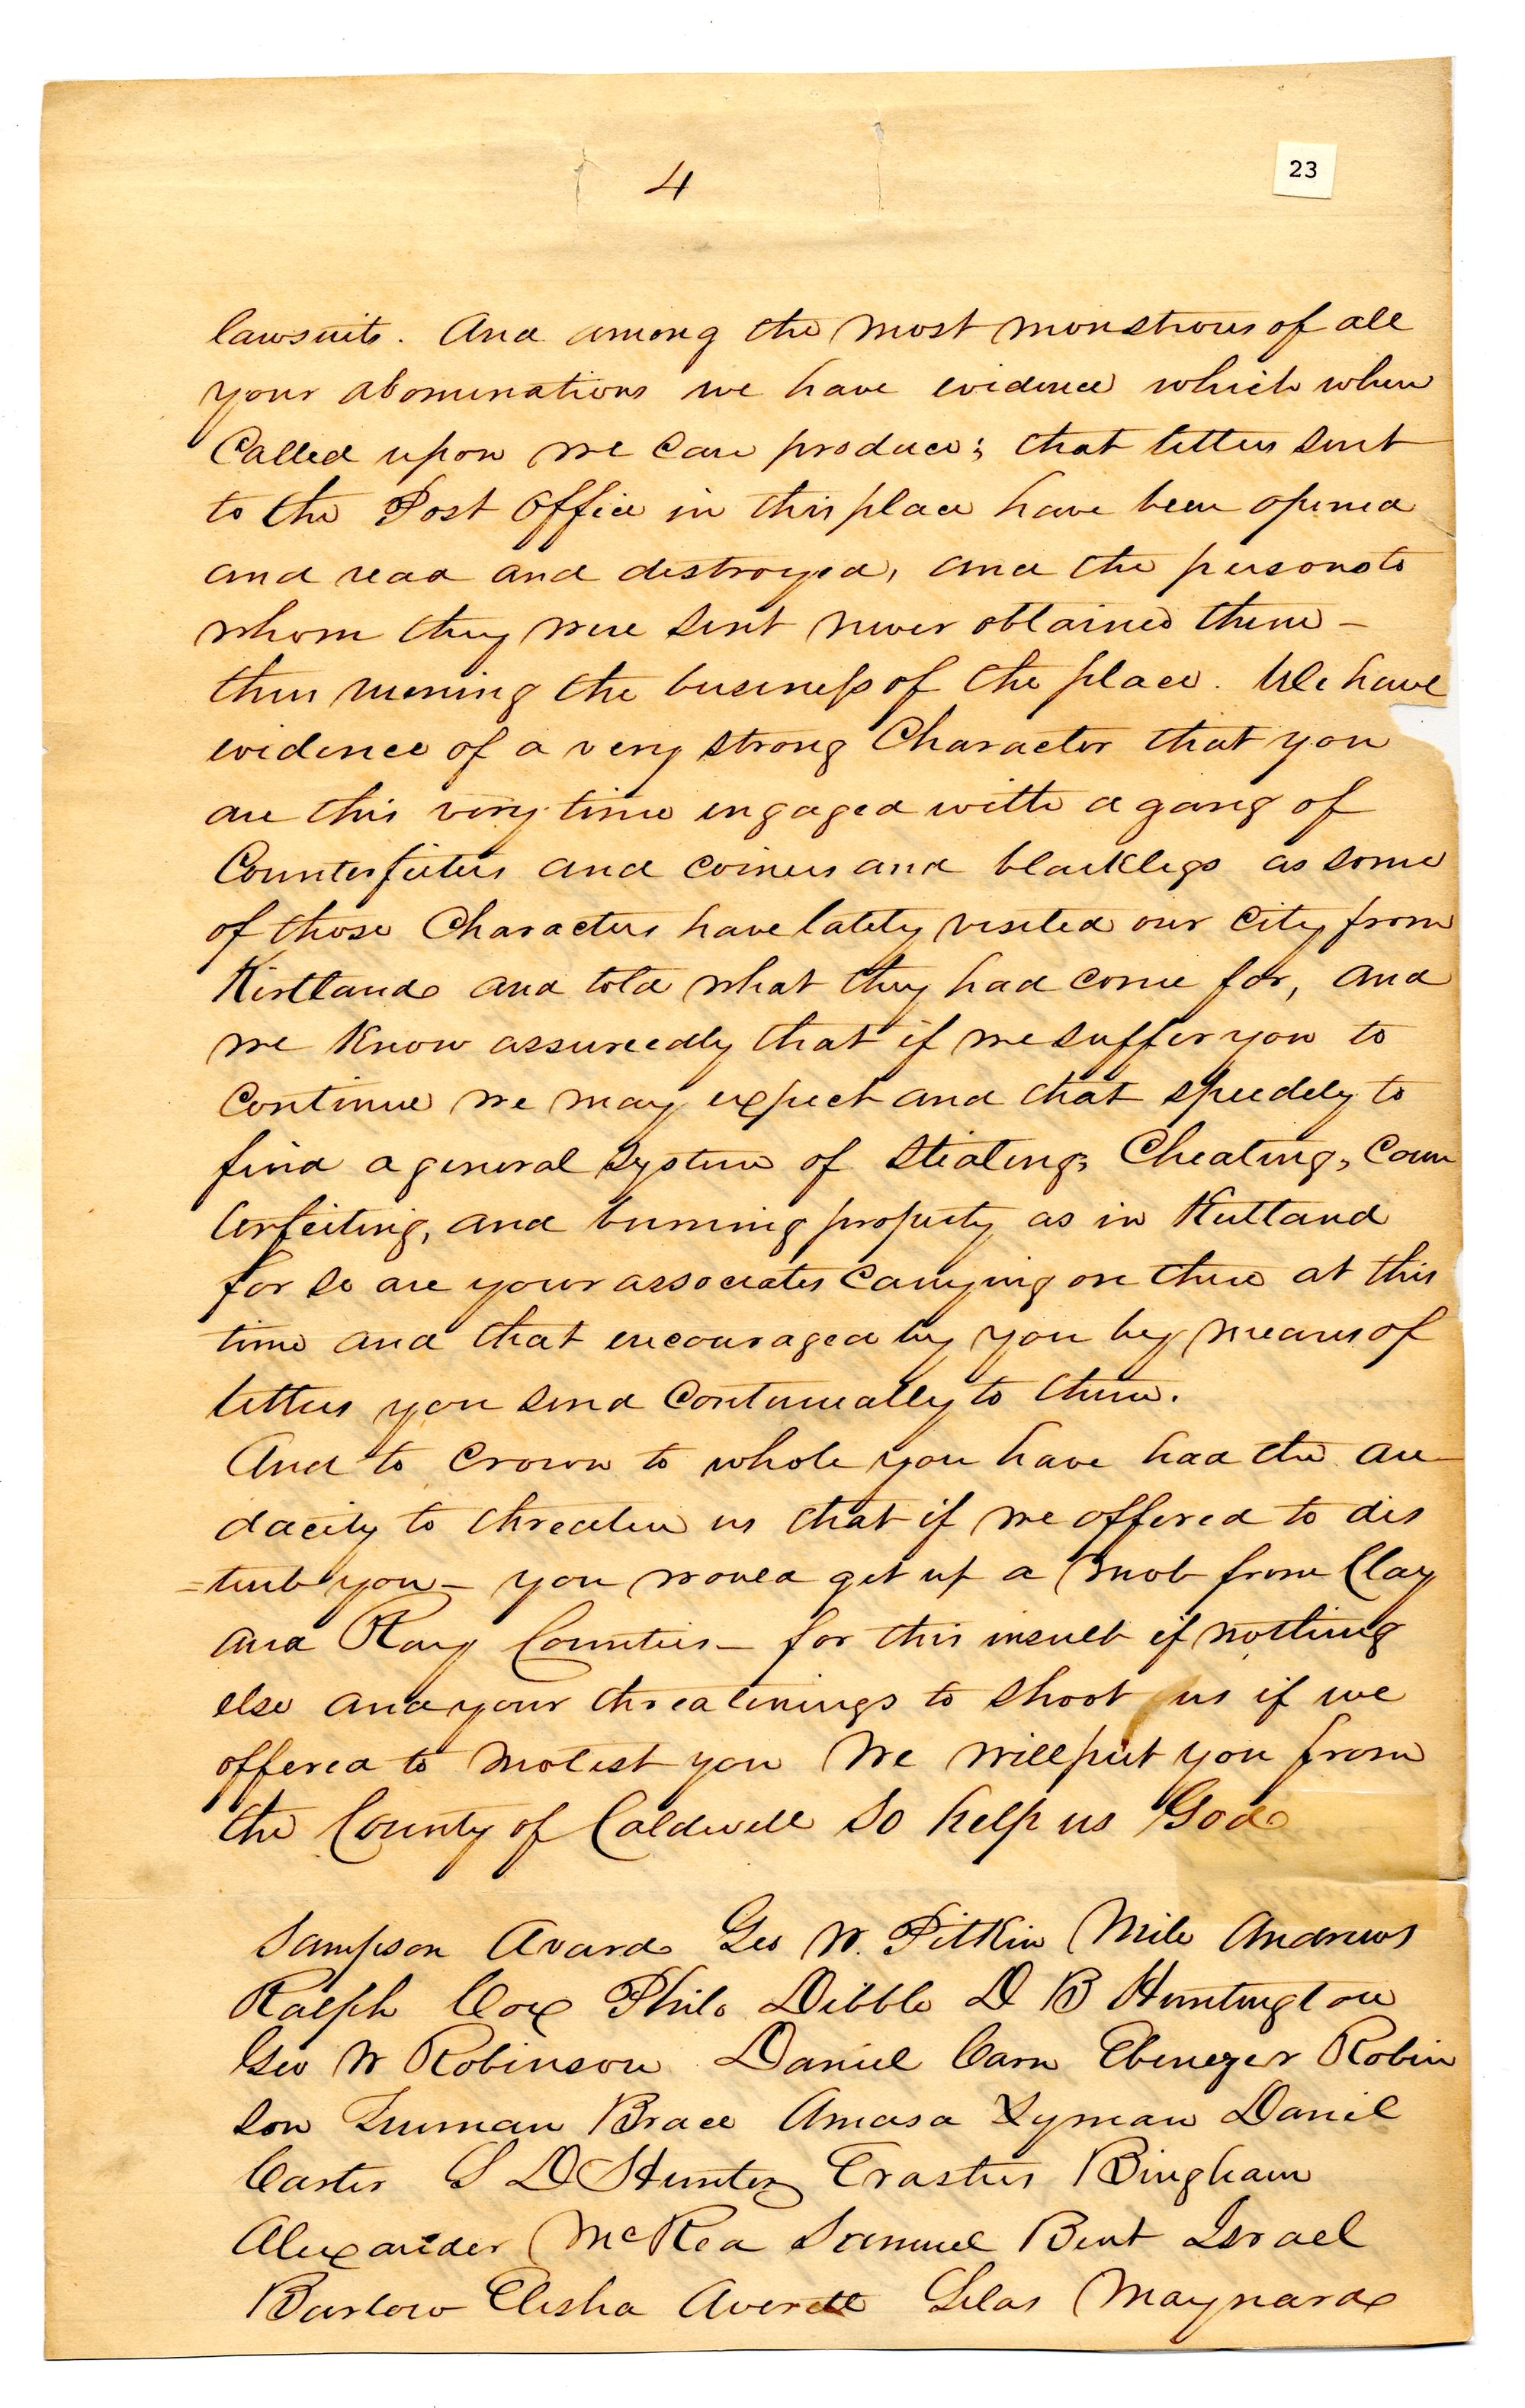 4
23
lawsuits. And among the most monstrous of all
your abominations we have evidence which when
Called upon we can produce; that letters sent
to the Post Office in this place have been opened
and read and destroyed, and the persons to
whom they were sent never obtained them -
thus ruening the business of the place. We have
evidence of a very strong Character that you
are this very time engaged with a gang of
Counterfeiters and coiners and blacklegs as some
of those Characters have lately visited our City from
Kirtland and told what they had come for, and
we know assureedly that if we suffer you to
continue we may expect and that speedely to
find a general system of stealing, Cheating, Coun
terfeiting, and burning property as in Kirtland
for so are your associates carrying on there at this
time and that encouraged by you by means of
letters you send continually to them.
And to crown to whole you have had the au-
dacity to threaten us that if we offered to dis
=turb you - you would get up a mob from Clay
and Ray Counties - for this insult if nothing
else and your threatenings to shoot us if we
offered to molest you We will put you from
the County of Caldwell So help us God
Sampson Avard Geo W. Pitkin Milo Andrews
Ralph Cox Philo Dibble D B Huntington
Geo W Robinson Daniel Carn Ebenezer Robin
son Truman Brace Amasa Lyman Daniel
Carter S D Hunter Erastus Bingham
Alexander McRea Samuel Bent Israel
Barlow Elisha Averett Silas Maynard